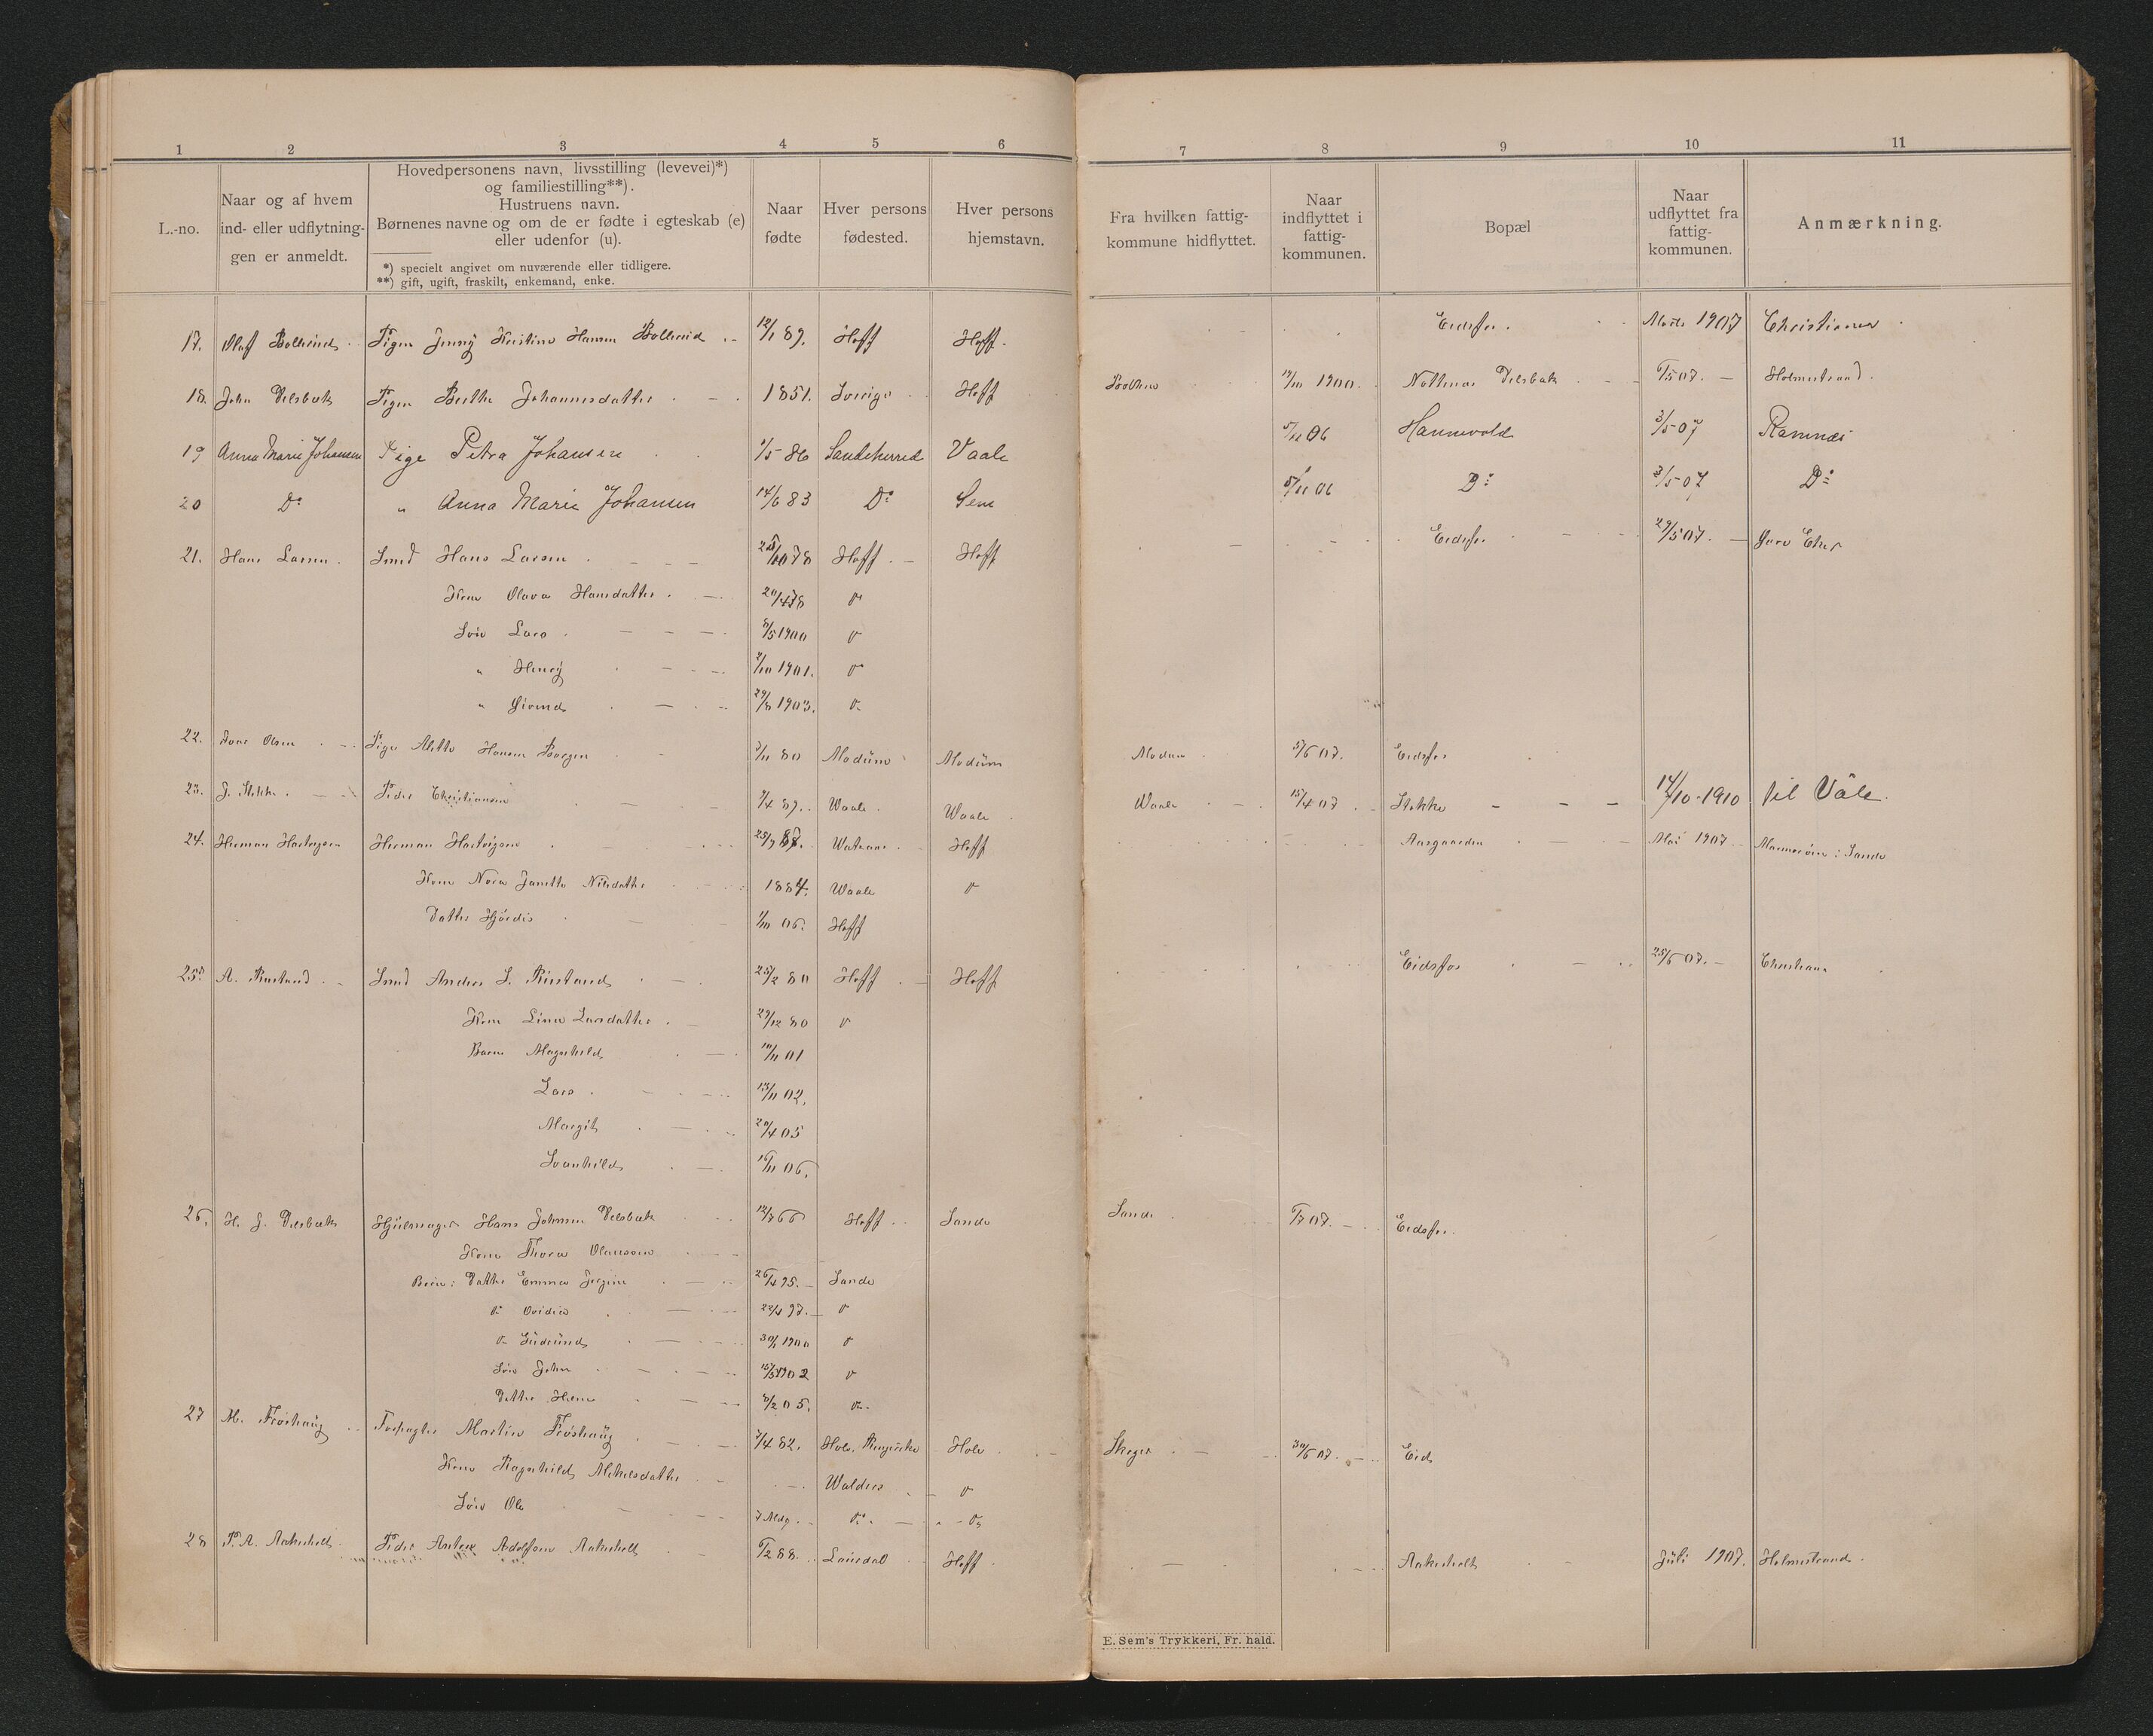 1 2 3 4 5 6 7 8 9 10 11
L.-no.
Naar og af hvem
ind- eller udflytning-
gen er anmeldt.
Hovedpersonens navn, livsstilling (levevei)*)
og familiestilling**).
Hustruens navn.
Børnenes navne og om de er fødte i egteskab (e)
eller udenfor (u).
*) specielt angivet om nuværende eller tidligere.
**) gift, ugift, fraskilt, enkemand, enke.
Naar
fødte
Hver persons
fødested.
Hver persons
hjemstavn.
Fra hvilken fattig-
kommune hidflyttet.
Naar
indflyttet i
fattig-
kommunen.
Bopæl
Naar
udflyttet fra
fattig-
kommunen.
Anmærkning.
17. Olaf Pigen Jenny Kristine Hansen 12/1 89. Hoff Hoff. Eidsfos. 1907 Christiania
18. John Velsbæk Pigen Berthe Johannesdatter 1851. Sverige Hoff 1900. Velsbæk 07. Holmestrand.
19 Anna Marie Johansen Pige Petra Johansen 1/5 86 Sandeherred Vaale 5/11 06 Hannevold 3/5-07 Ramnæs
20 Do " Anna Marie Johansen 14/6 83 Do Sem 5/11 06 Do 3/5-07 Do
21. Hans Larsen. Smed Hans Larsen 78 Hoff Hoff Eidsfos 29/5 07. Øvre Eker
Kone Olava Hansdatter. 20/4 78 do
Søn Lars. 8/5 1900 do
" Henry 2/10 1901. do
" Øivind 29/8 1903. do
22. Olsen Pige Alette Hansen Borgen 7/11 80 Modum Modum Modum 5/6 07. Eidsfos
23. J. Stokke. Peder Christiansen 7/4 89. Waale. Waale Waale 15/4 07 Stokke 14/10-1910 til Våle.
24. Herman Hartvigsen Herman Hartvigsen 25/7 87. Hoff Aasgaarden Mai 1907 i Sande
Kone Nora Janette Nilsdatter 1884. Waale do
Datter Hjördis 1/10 06. Hoff
25. A. Rustand. Smed Anders L. Rustand 25/2 80 Hoff Hoff Eidsfos 25/6 07. Christiania
Kone Lina Larsdatter. 29/12 80 do
Barn Magnhild 10/11 01
Lars. 13/11 02.
Margit 20/4 05
Svanhild 16/11 06.
26. H. J. Velsbæk Hjulmager Hans Johnsen Velsbæk 12/7 66 Hoff Sande Sande 6/7 07. Eidsfos.
Kone Thora Olaussen
Børn: Datter Emma Jørgine 26/4 95. Sande
do Ovidia 22/4 97. do
do Gudrund 30/1 1900 do
Søn John 15/3 1902 do
Datter 8/2 05. do
27 M. Fröshaug Forpagter Martin Fröshaug 7/4 82. Hole, Ringerike Hole Skoger 30/6 07. Eid
Kone Ragnhild Mikelsdatter Waldres do
Søn Ole 7 Mdr. do do
28 P. A. Aakerholt Peder Anton Adolfsen Aakerholt 6/2 88. Laurdal Hoff. Aakerholt Juli 1907. Holmestrand.
E. Sem's Trykkeri, Fr. hald.